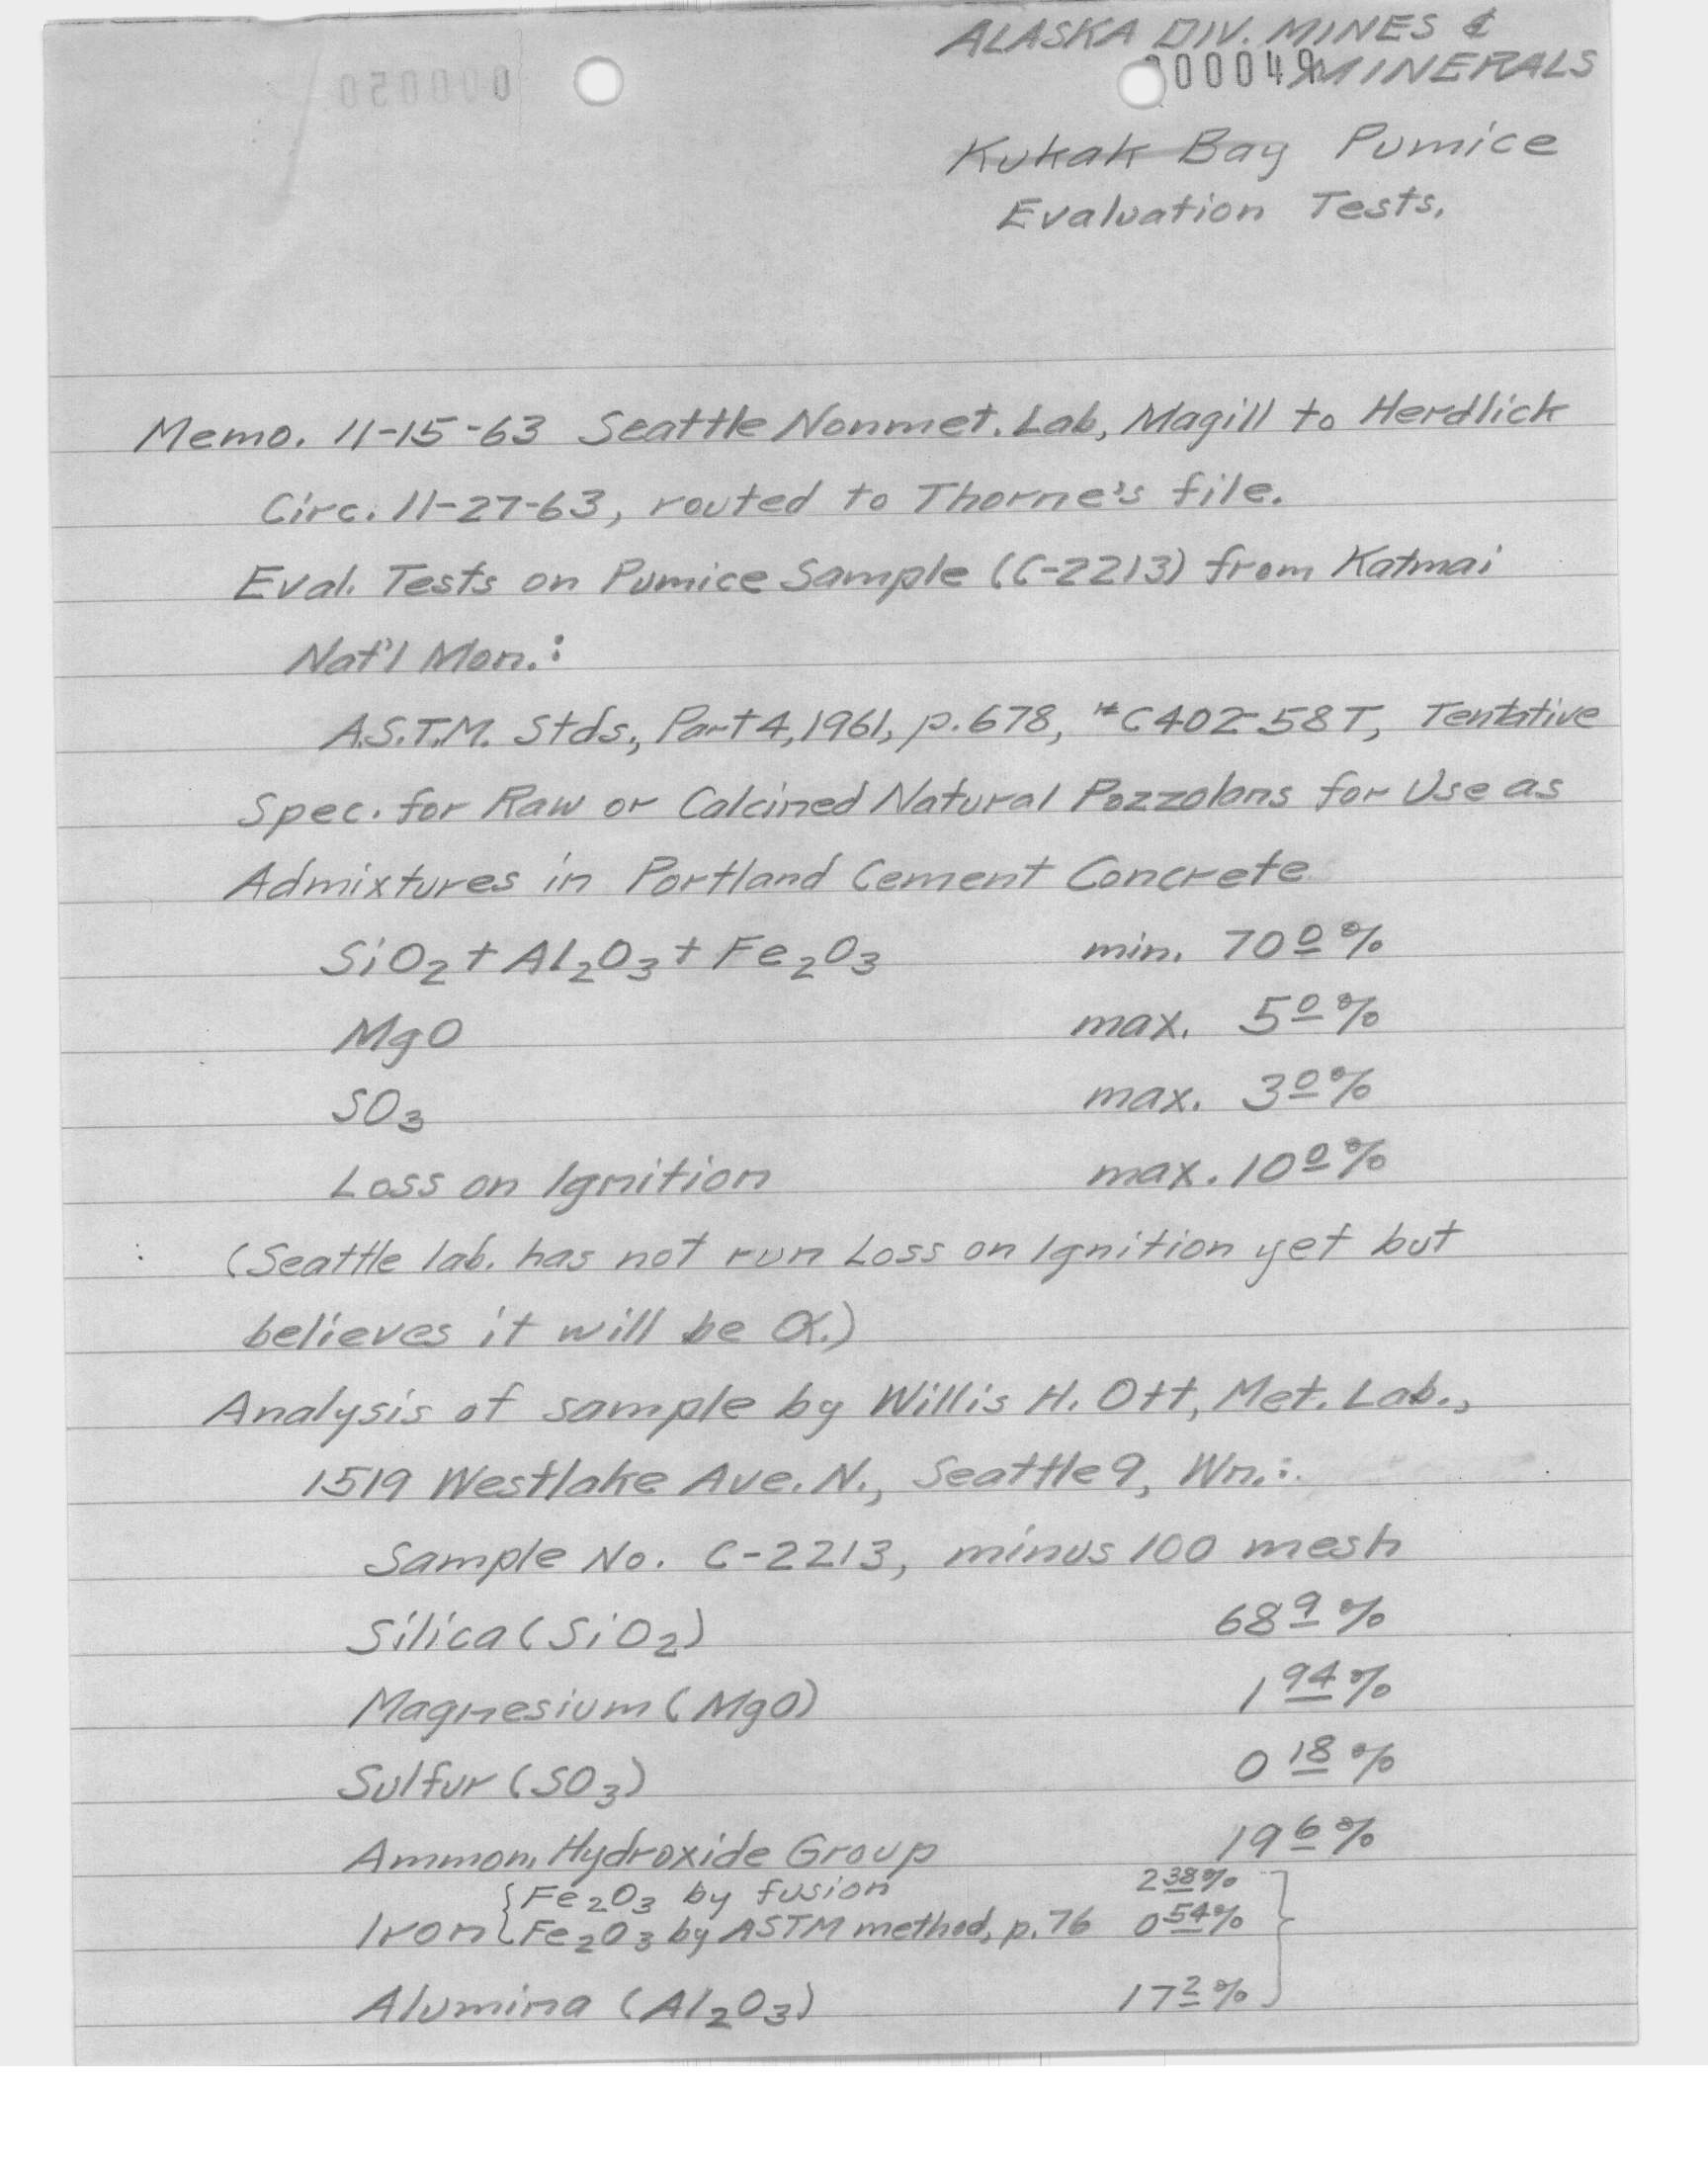 ALASKA DIV. MINES &
000049 MINERALS
000050
Kukak Bay Pumice
Evaluation Tests.
Memo. 11-15-63 Seattle Nonmet. Lab, Magill to Herdlick
Circ. 11-27-63, routed to Thorne's file.
Eval. Tests on Pumice Sample (C-2213) from Katmai
Nat'l Mon.:
A.S.T.M. Stds., Part 4, 1961, p. 678, #C402-58T, Tentative
Spec. for Raw or Calcined Natural Pozzolans for Use as
Admixtures in Portland Cement Concrete
SiO₂ + Al₂O₃ + Fe₂O₃ min. 70⁰%
MgO max. 5⁰%
SO₃ max. 3⁰%
Loss on Ignition max. 10⁰%
(Seattle lab. has not run Loss on Ignition yet but
believes it will be OK.)
Analysis of sample by Willis H. Ott, Met. Lab.,
1519 Westlake Ave. N., Seattle 9, Wn.:
Sample No. C-2213, minus 100 mesh
Silica (SiO₂) 68⁹%
Magnesium (MgO) 1⁹⁴%
Sulfur (SO₃) 0¹⁸%
Ammon. Hydroxide Group 19⁶%
Fe₂O₃ by fusion 2³⁸%
Iron { Fe₂O₃ by ASTM method, p. 76 0⁵⁴%
Alumina (Al₂O₃) 17²%